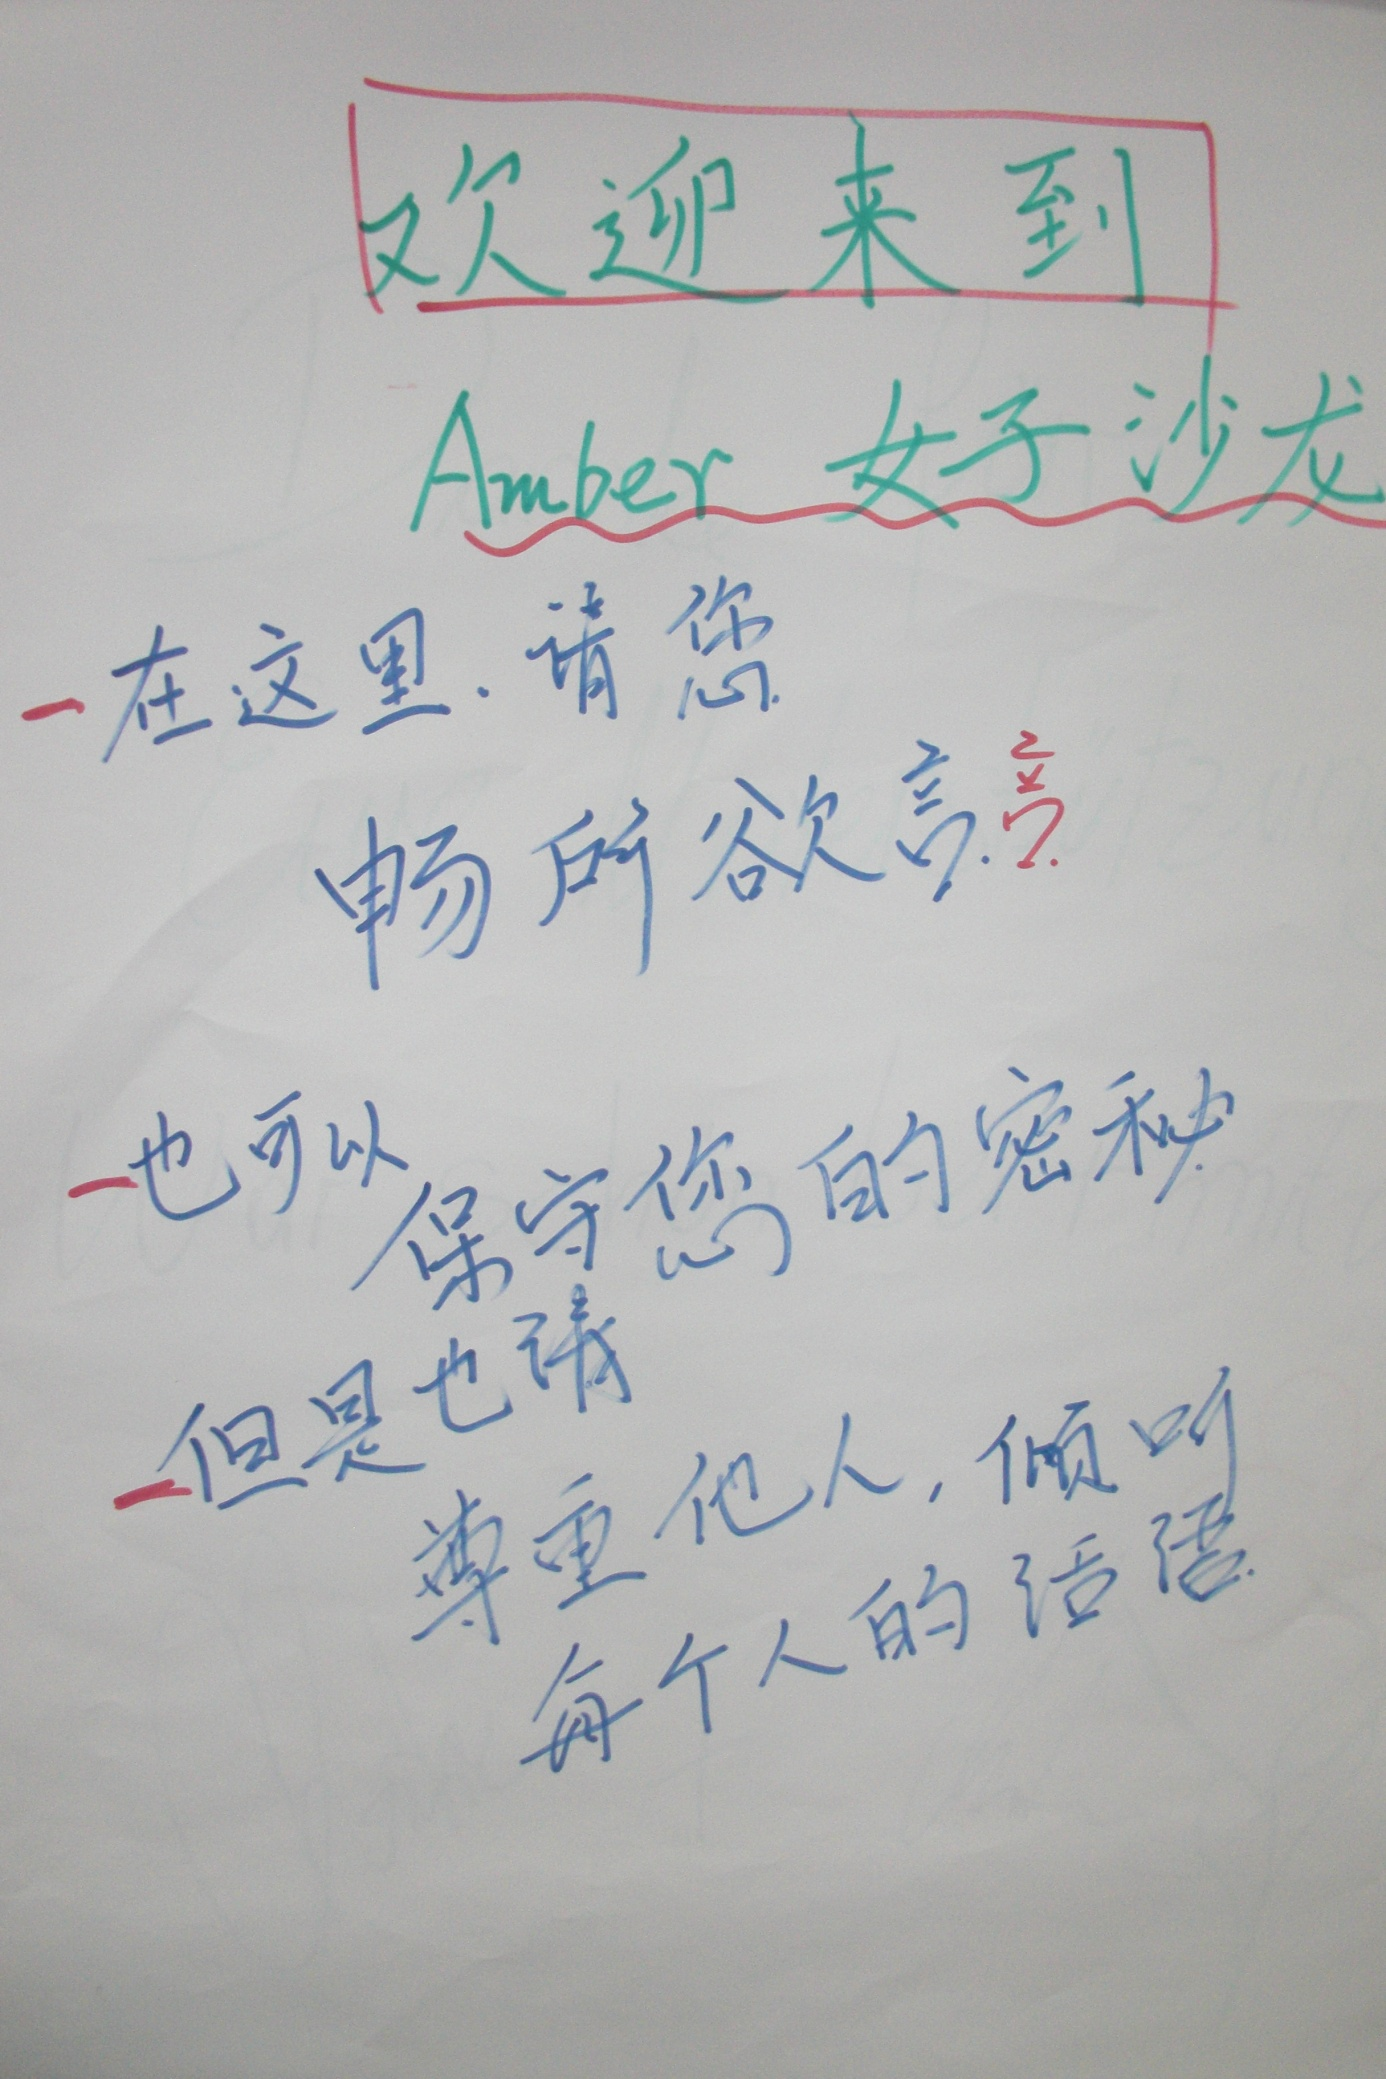 欢迎来到
Amber 女子沙龙
-在这里.请您
畅所欲言.
-也可以
保守您的密秘.
-但是也请
尊重他人,倾听
每个人的话语.